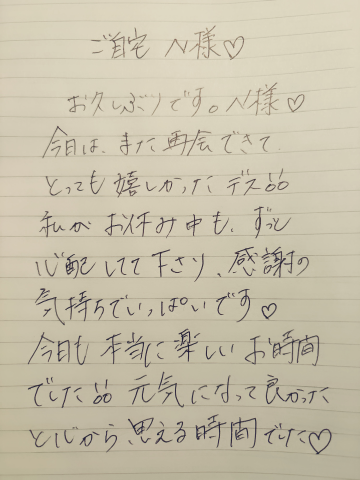 ご自宅 N様♡
お久しぶりです。N様♡
今日は、また再会できて
とっても嬉しかったデス
私がお休み中も、ずっと
心配してて下さり、感謝の
気持ちでいっぱいです♡
今日も本当に楽しいお時間
でした 元気になって良かった
と心から思える時間でした♡